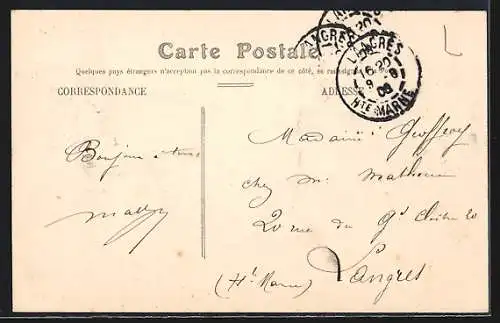 Carte Postale
Quelques pays étrangers n'acceptent pas la correspondance de ce côté, se renseigner à la Poste
CORRESPONDANCE
ADRESSE
LANGRES
16 20
HTE MARNE
Bonjour à tous
Madame Geoffroy
chez Mr
20 rue du Gd
Langres
(Hte Marne)